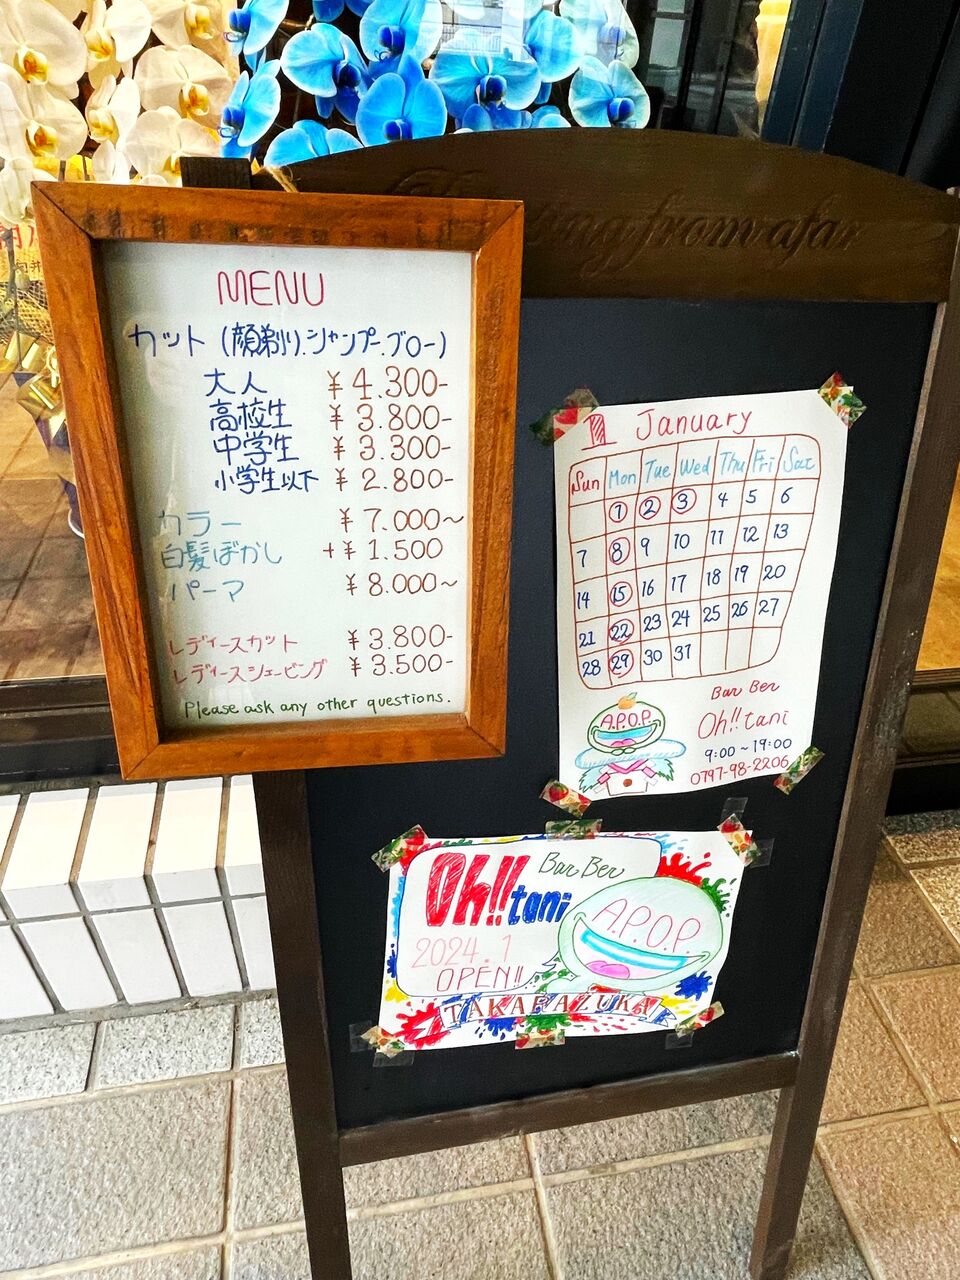 MENU
カット（顔剃り.シャンプー.ブロー）
大人 ¥4.300-
高校生 ¥3.800-
中学生 ¥3.300-
小学生以下 ¥2.800-
カラー ¥7.000〜
白髪ぼかし +¥1.500
パーマ ¥8.000〜
レディースカット ¥3.800-
レディースシェービング ¥3.500-
Please ask any other questions.
from afar
1 January
Sun Mon Tue Wed Thu Fri Sat
1 2 3 4 5 6
7 8 9 10 11 12 13
14 15 16 17 18 19 20
21 22 23 24 25 26 27
28 29 30 31
A.P.O.P.
Bar Ber
Oh!! tani
9:00〜19:00
0797-98-2206
Oh!! tani
Bar Ber
2024.1
OPEN!!
A.P.O.P.
TAKARAZUKA